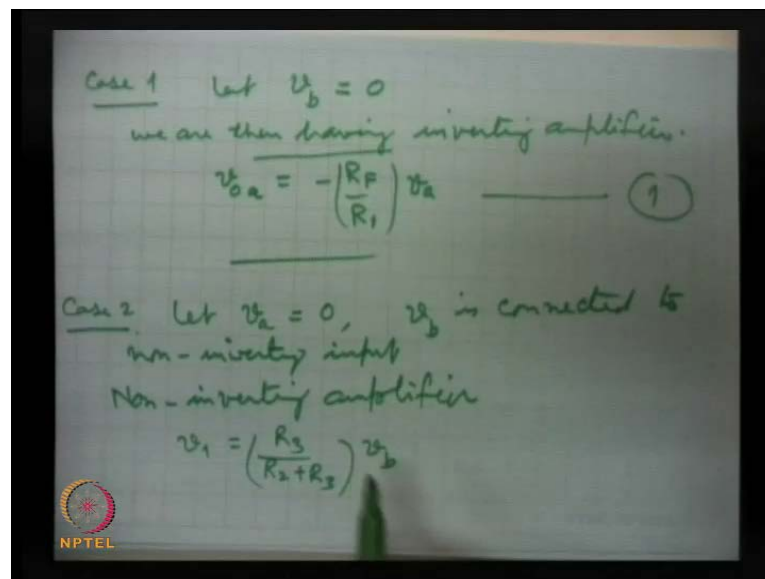 Case 1 Let v_b = 0
we are then having inverting amplifier.
v_oa = -(R_F/R_1) v_a ——— (1)
Case 2 Let v_a = 0, v_b is connected to
non-inverting input
Non-inverting amplifier
v_1 = (R_3/(R_2+R_3)) v_b
NPTEL